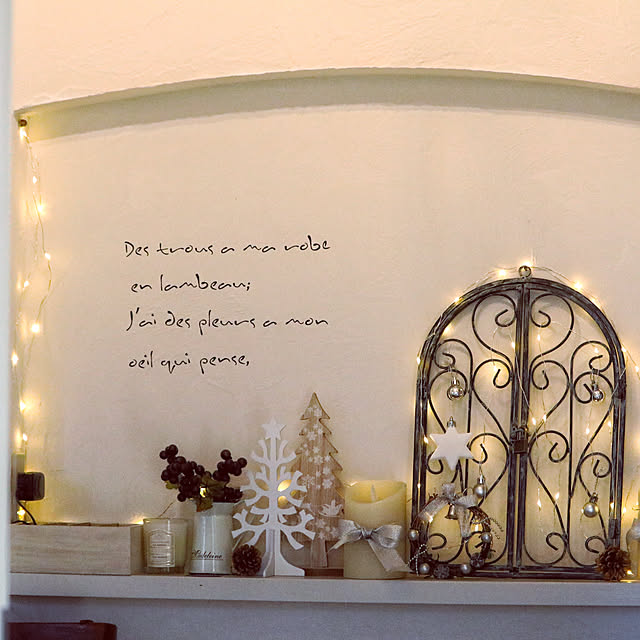 Des trous a ma robe
en lambeau;
J'ai des pleurs a mon
oeil qui pense,
Madeleine